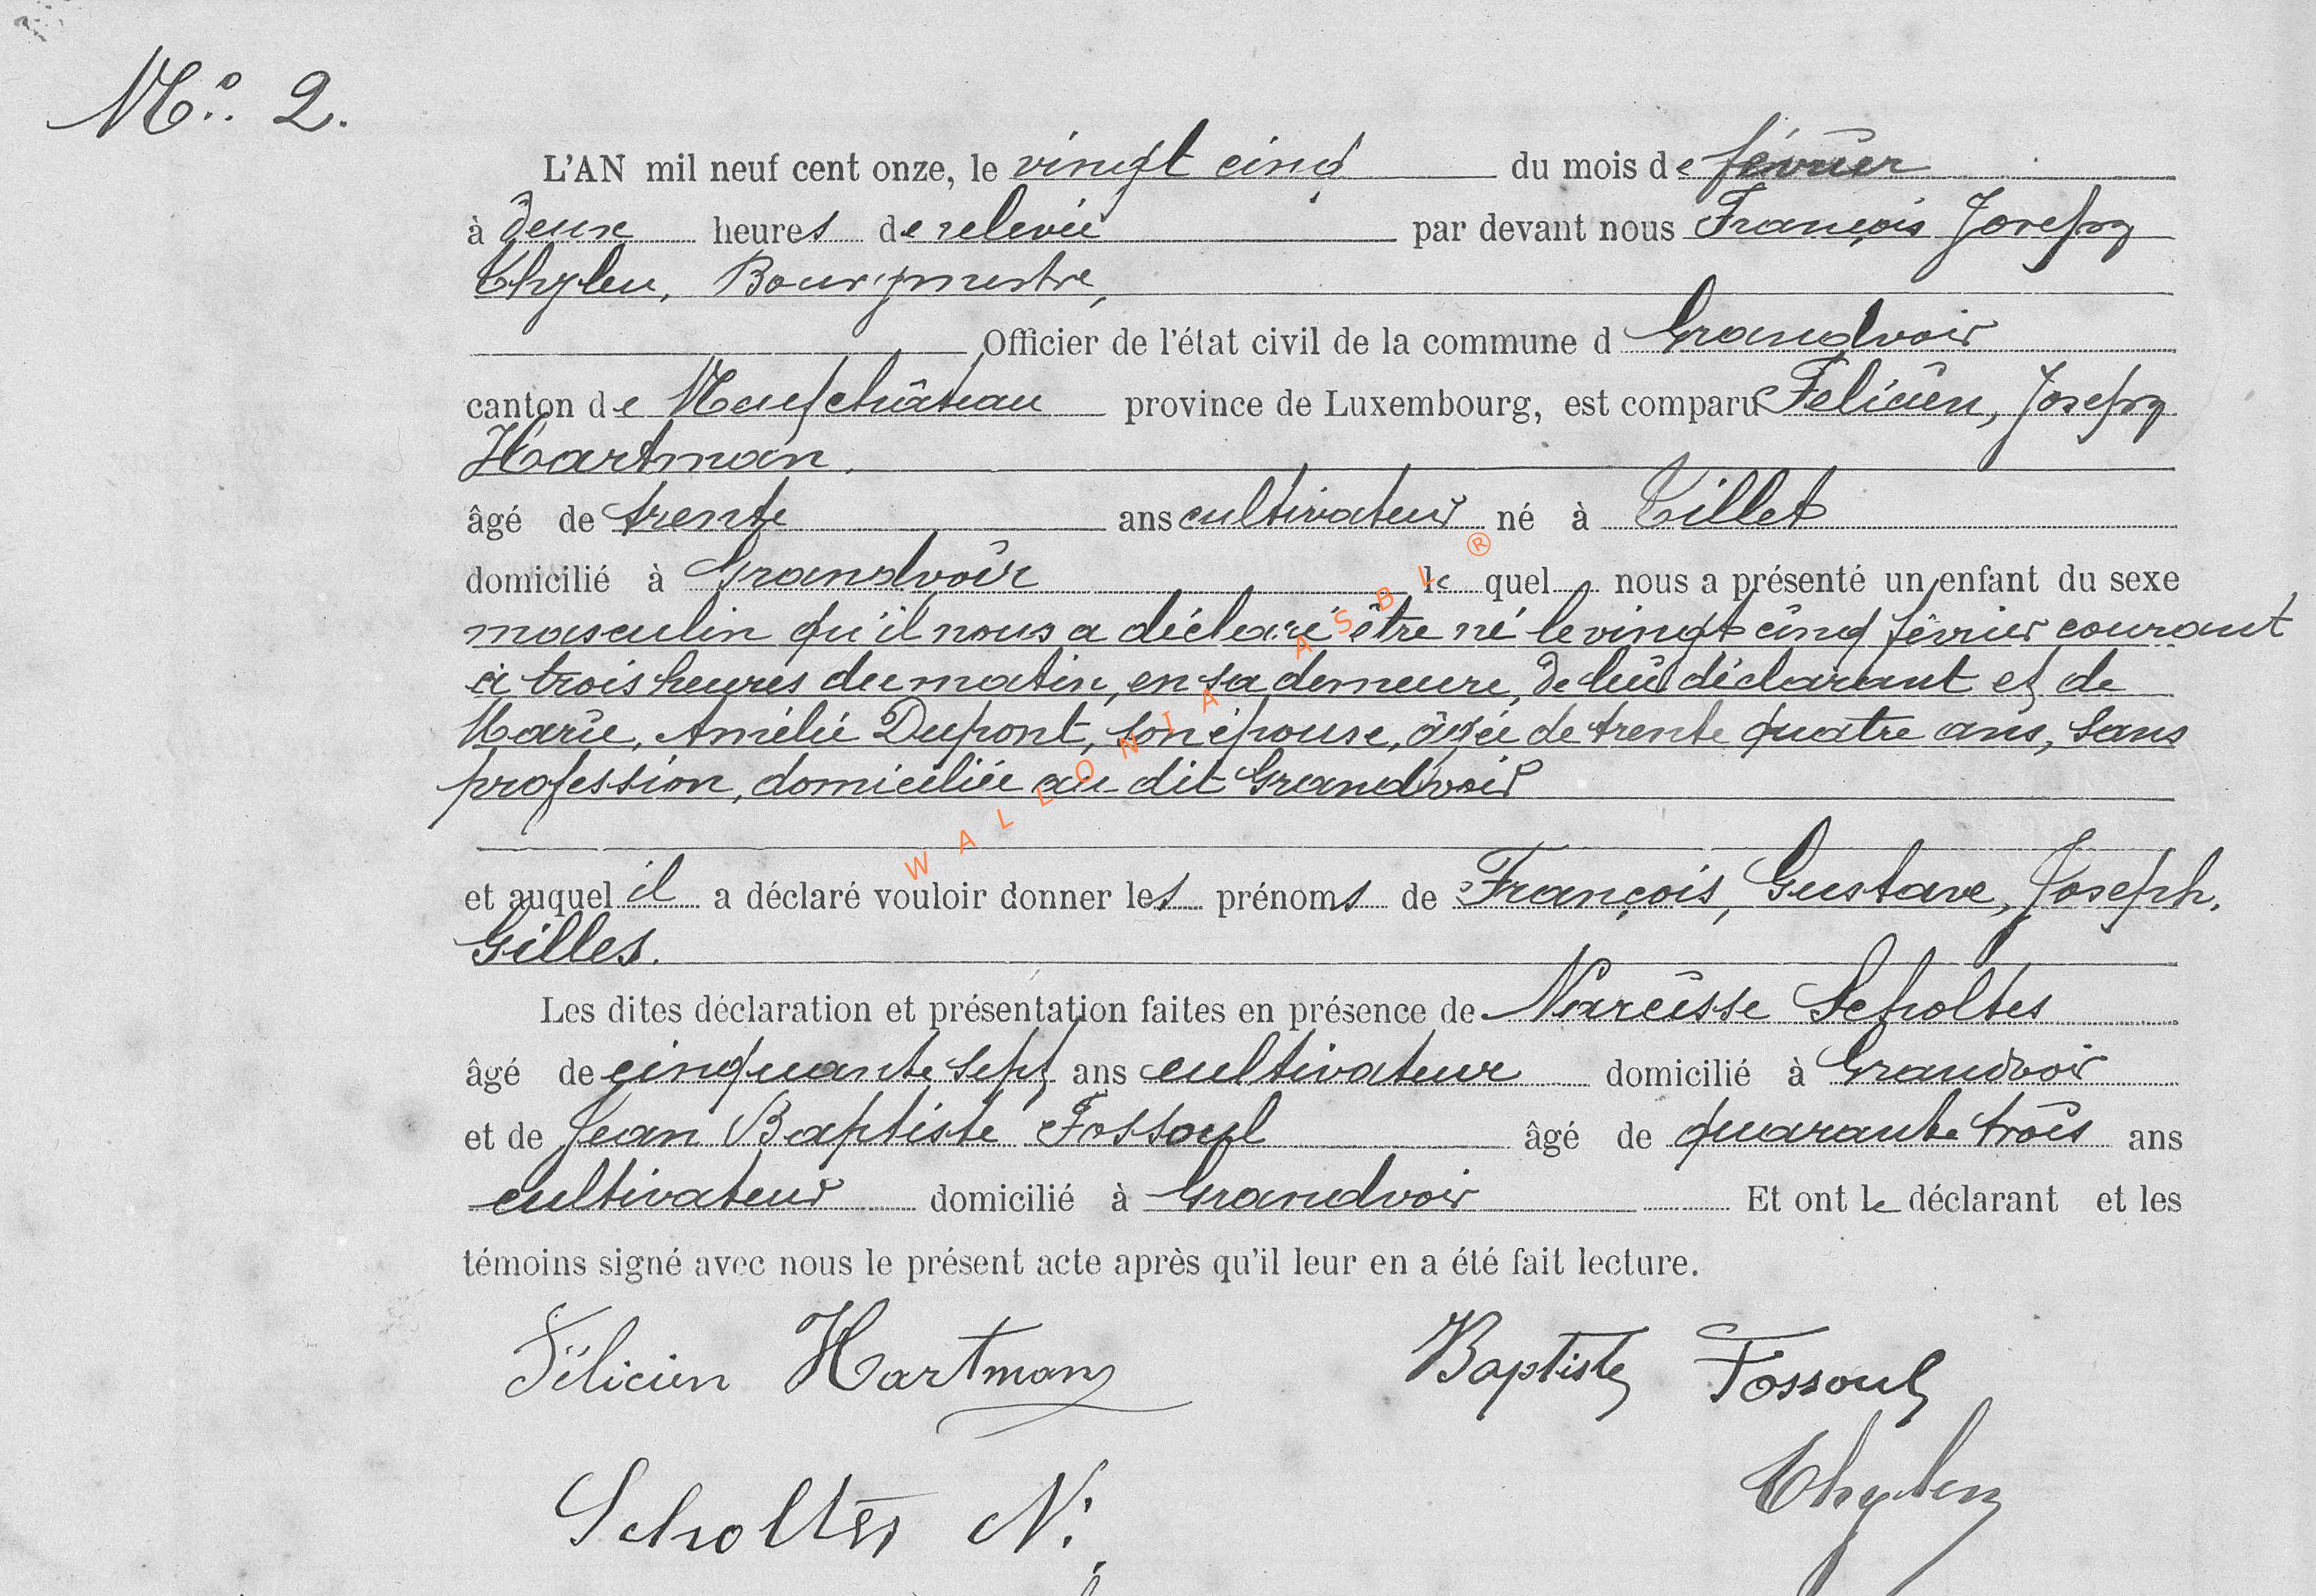 No. 2.
L'AN mil neuf cent onze, le vingt cinq du mois de février
à deux heures de relevée par devant nous François Joseph
Thylen, Bourgmestre,
Officier de l'état civil de la commune d Grandvoir
canton de Neufchâteau province de Luxembourg, est comparu Felicien, Joseph
Hartman.
âgé de trente ans cultivateur né à Tillet
domicilié à Grandvoir le quel nous a présenté un enfant du sexe
masculin qu'il nous a déclaré être né le vingt cinq février courant
à trois heures du matin, en sa demeure, de lui déclarant et de
Marie, Amélie Dupont, son épouse, âgée de trente quatre ans, sans
profession, domiciliée au dit Grandvoir
et auquel il a déclaré vouloir donner les prénoms de François, Gustave, Joseph,
Gilles.
Les dites déclaration et présentation faites en présence de Narcisse Scholtes
âgé de cinquante sept ans cultivateur domicilié à Grandvoir
et de Jean Baptiste Fossoul âgé de quarante trois ans
cultivateur domicilié à Grandvoir Et ont le déclarant et les
témoins signé avec nous le présent acte après qu'il leur en a été fait lecture.
Félicien Hartman Baptiste Fossoul
Scholtes N. Thylen
WALLONIA ASBL ®